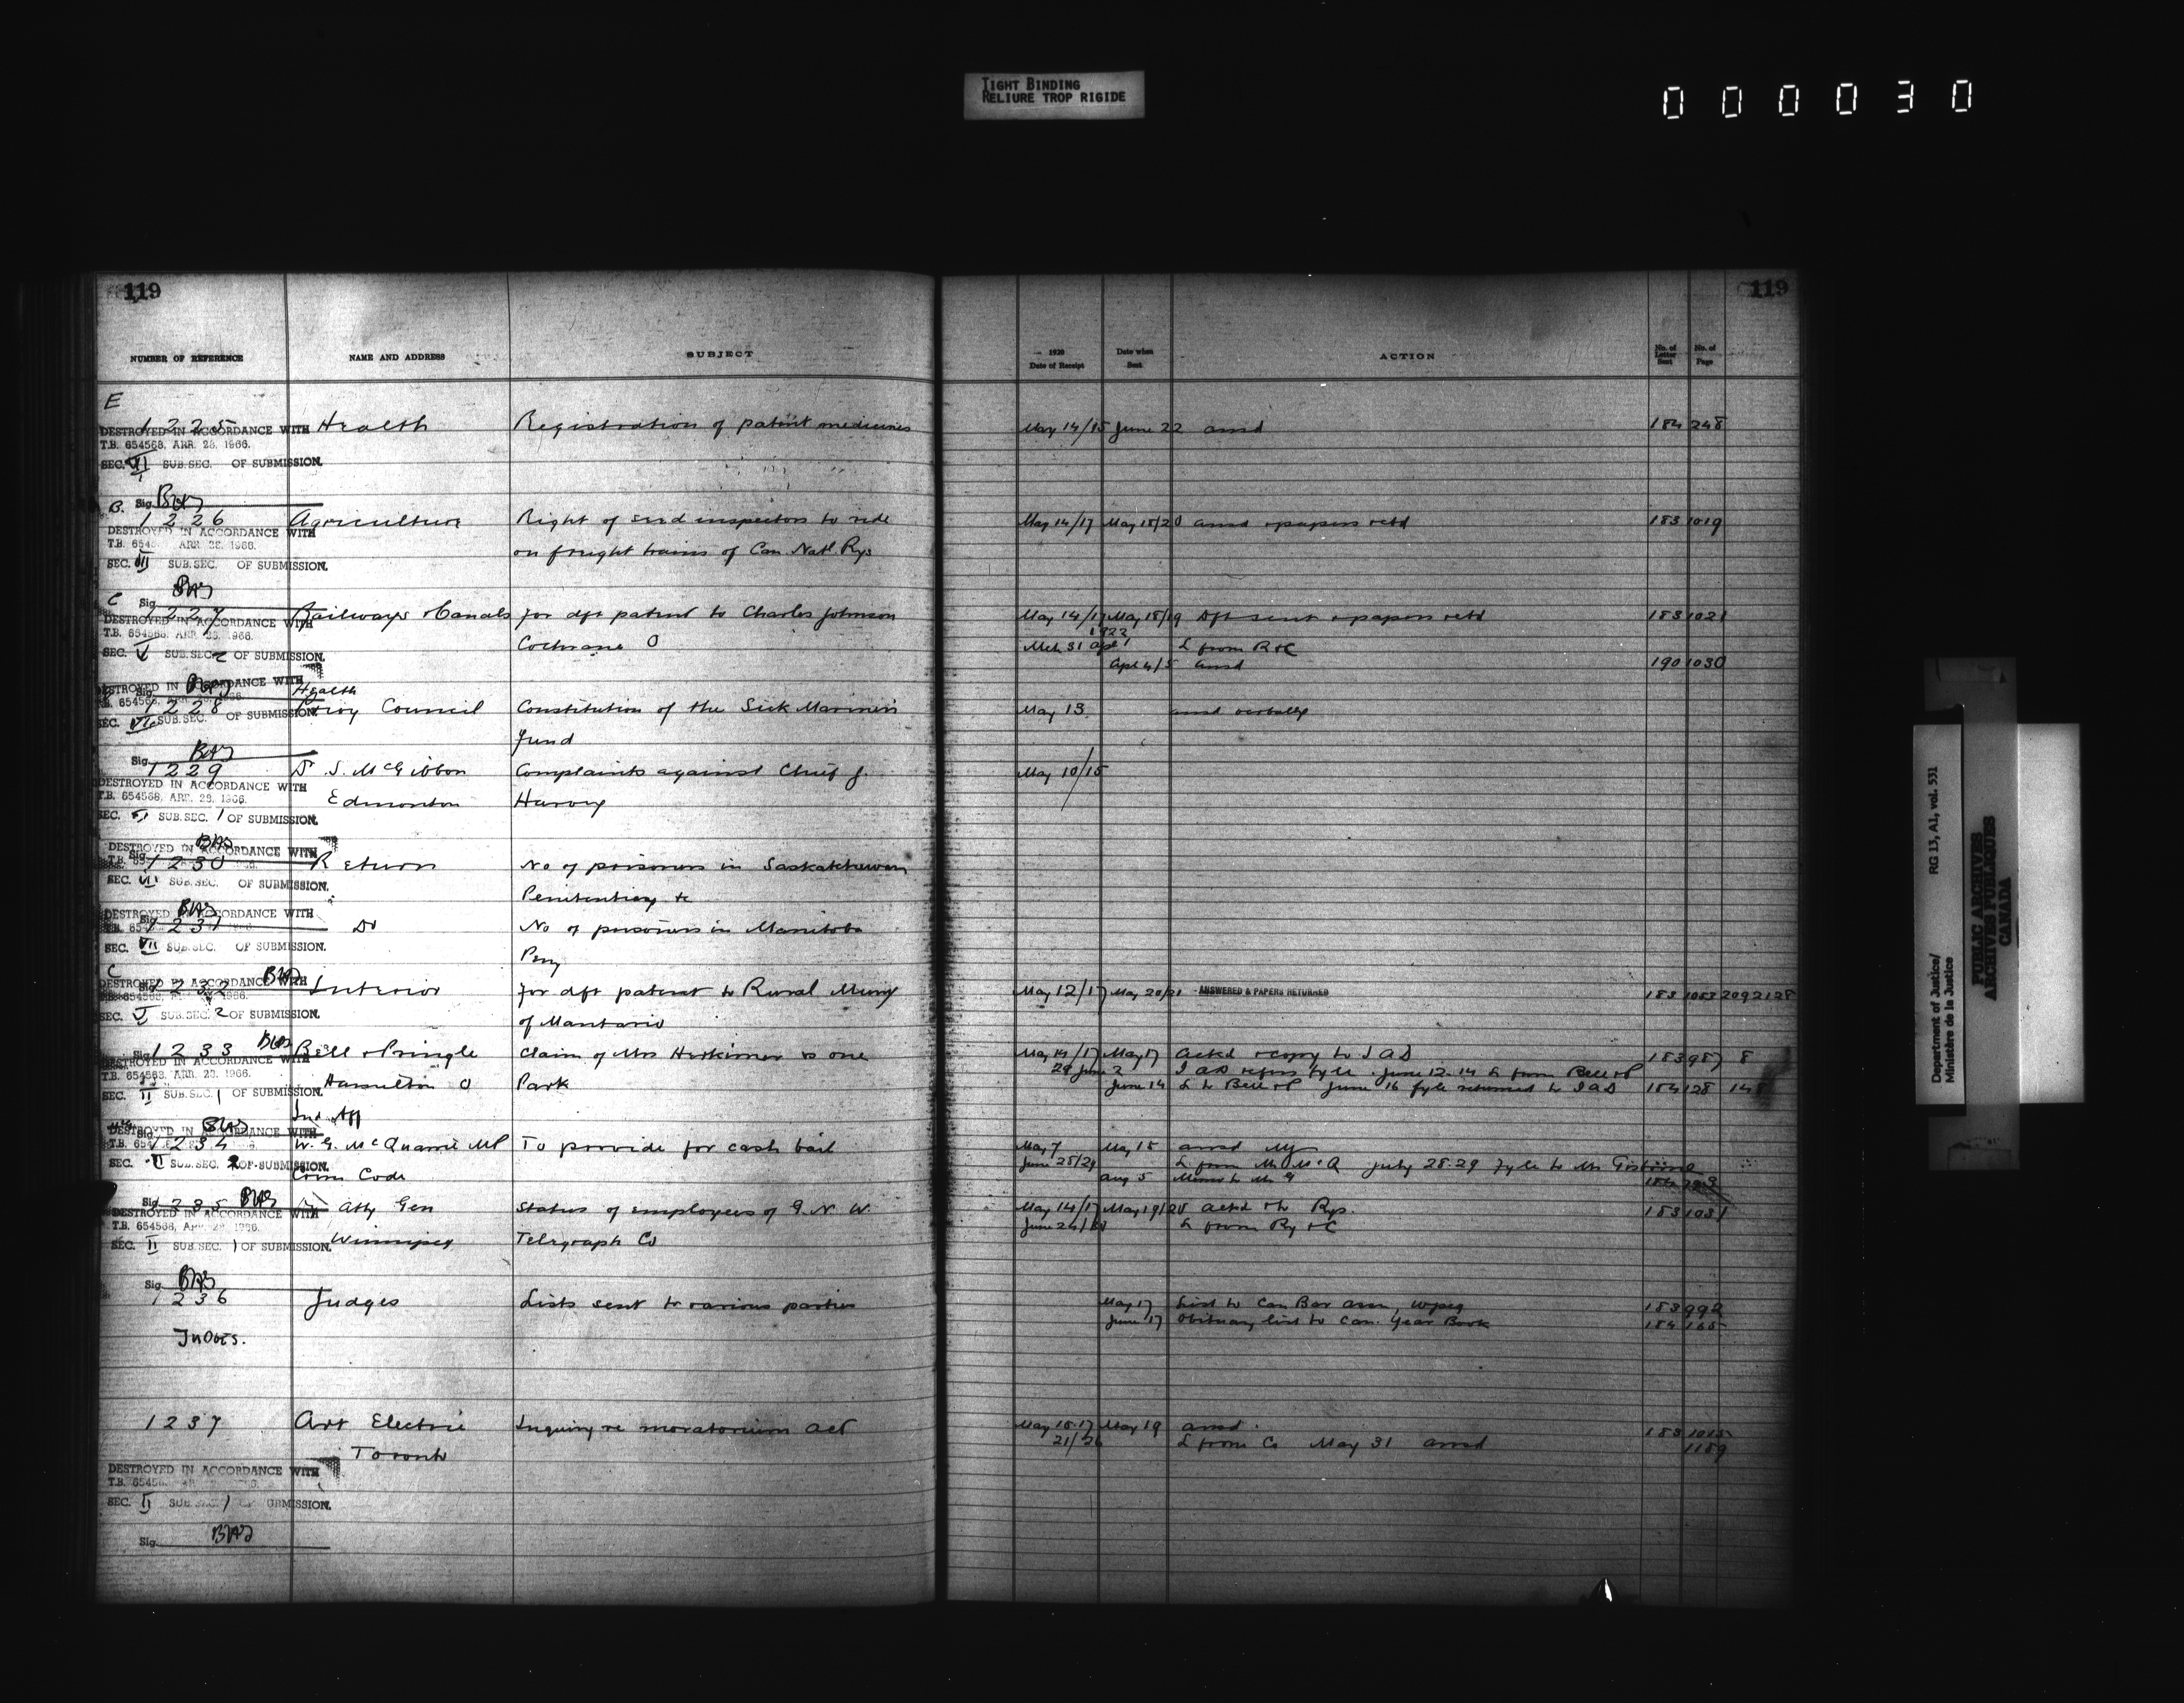 TIGHT BINDING
RELIURE TROP RIGIDE
000030
119
119
NUMBER OF REFERENCE NAME AND ADDRESS SUBJECT 1920 Date of Receipt Date when Sent ACTION No. of Letter Sent No. of Page
E
1225 Health Registration of patent medicines May 14/15 June 22 ansd 184 248
DESTROYED IN ACCORDANCE WITH
T.B. 654568, APR. 28, 1966.
SEC. VI SUB.SEC. OF SUBMISSION.
Sig. BAS
B.
1226 Agriculture Right of seed inspectors to ride May 14/17 May 18/20 ansd & papers retd 183 1019
DESTROYED IN ACCORDANCE WITH
on freight trains of Can. Natl. Rys
SEC. VII SUB.SEC. OF SUBMISSION.
Sig. BAS
C
1227 Railways & Canals for dft patent to Charles Johnson May 14/17 May 18/19 Dft sent & papers retd 183 1021
DESTROYED IN ACCORDANCE WITH
T.B. 654568, APR. 28, 1966.
Cochrane O 1922 Mch 31 Apl 1 L from R&C
SEC. V SUB.SEC. 2 OF SUBMISSION.
Apl 4/5 ansd 190 1030
DESTROYED IN ACCORDANCE WITH
Sig. BAS
Health
1228 Privy Council Constitution of the Sick Mariners May 13 ansd verbally
SEC. VII SUB.SEC. OF SUBMISSION.
Fund
Sig. BAS
1229 Dr. S. McGibbon Complaints against Chief J. May 10/15
DESTROYED IN ACCORDANCE WITH
T.B. 654568, APR. 28, 1966.
Edmonton Harvey
SEC. SUB.SEC. 1 OF SUBMISSION.
Sig. BAS
DESTROYED IN ACCORDANCE WITH
1230 Return No of prisoners in Saskatchewan
SEC. VII SUB.SEC. OF SUBMISSION.
Penitentiary &c
Sig. BAS
DESTROYED IN ACCORDANCE WITH
1231 Do No of prisoners in Manitoba
SEC. VII SUB.SEC. OF SUBMISSION.
Peny
C
Sig. BAS
DESTROYED IN ACCORDANCE WITH
1232 Interior for dft patent to Rural Muny May 12/17 May 20/21 ANSWERED & PAPERS RETURNED 183 1053 2092128
SEC. V SUB.SEC. 2 OF SUBMISSION.
of Mantario
Sig. BAS
1233 Bell & Pringle Claim of Mrs Herkimer vs one May 14/17 May 17 ackd & copy to I A D 183 987 8
DESTROYED IN ACCORDANCE WITH
T.B. 654568, APR. 28, 1966.
29 June 2 I A D refers fyle. June 12-14 L from Bell & P
Hamilton O Park June 14 L to Bell & P June 16 fyle returned to I A D 184 128 148
SEC. II SUB.SEC. 1 OF SUBMISSION.
Ind. Aff
Sig. BAS
DESTROYED IN ACCORDANCE WITH
1234 W. G. McQuarrie MP To provide for cash bail May 7 May 15 ansd
June 28/29 L from Mr McQ July 28-29 Fyle to Mr Gisborne
SEC. II SUB.SEC. 2 OF SUBMISSION.
Crim Code Aug 5 Memo to Mr G
Sig. BAS
1235 Atty Gen Status of employees of G. N. W. May 14/17 May 19/20 ackd & to Rys. 183 1031
DESTROYED IN ACCORDANCE WITH
June 24/ L from Ry & C
SEC. II SUB.SEC. 1 OF SUBMISSION.
Winnipeg Telegraph Co
Sig. BAS
1236 Judges Lists sent to various parties May 17 List to Can Bar assn, Wpeg 183 992
June 17 Obituary list to Can. Year Book 184 165
In Obis.
1237 Art Electric Inquiry re moratorium act May 15-17 May 19 ansd. 183 1015
Toronto 21/26 L from Co May 31 ansd 1189
DESTROYED IN ACCORDANCE WITH
SEC. II SUB.SEC. 1 OF SUBMISSION.
Sig. BAS
Department of Justice/
Ministère de la Justice
RG 13, A1, vol. 531
PUBLIC ARCHIVES
ARCHIVES PUBLIQUES
CANADA